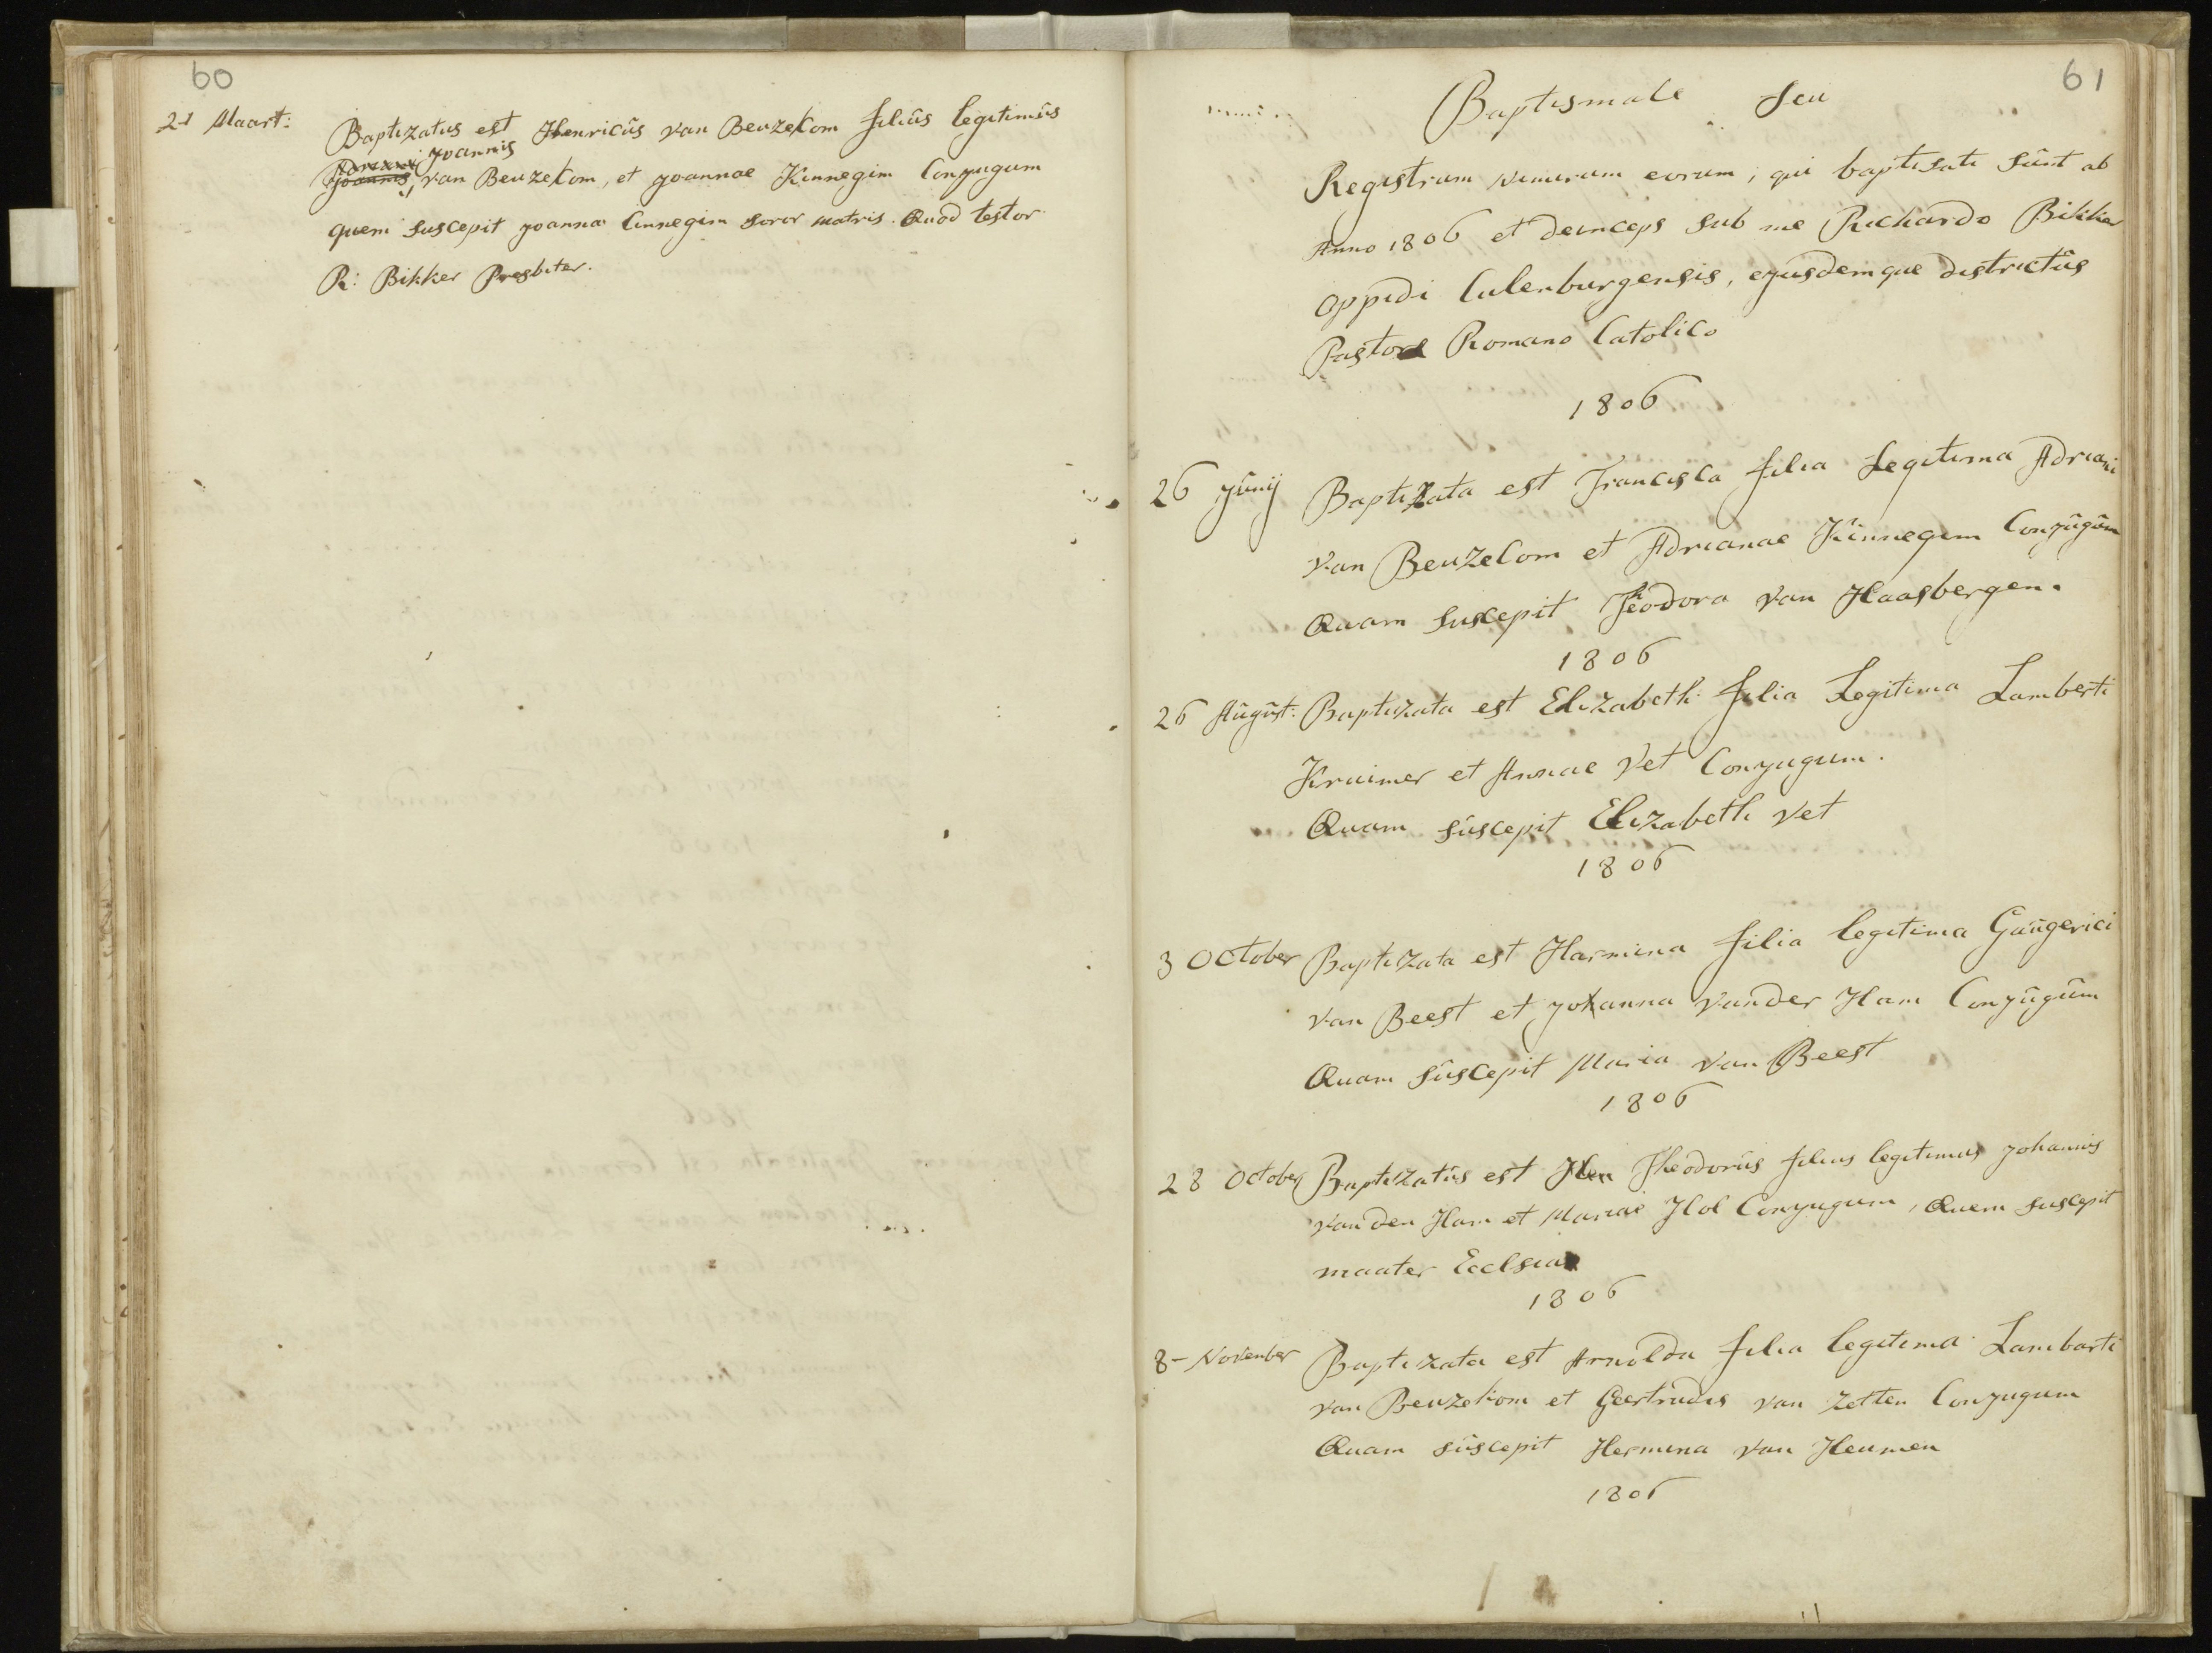 60
21 Maart: Baptizatus est Henricûs van Beuzekom filiûs legitimûs
Adriani Joannis
Joannis, van Beuzekom, et Joannae Kinnegim Conjugum
quem suscepit Joanna Cinnegim soror matris. Quod testor
R: Bikker Presbiter.
61
Baptismale Seu
Registrum numerum eorum, qui baptisati sûnt ab
Anno 1806 et deinceps sub me Richardo Bikker
oppidi Culenburgensis, ejusdemque districtûs
Pastore Romano Catolico
1806
26 Jûnij Baptizata est Francisca filia Legitima Adriani
van Beuzekom et Adrianae Kinnegem Conjûgûm
Quam suscepit Teodora van Haasbergen.
1806
26 Aûgûst: Baptizata est Elizabeth filia Legitima Lamberti
Kruimer et Annae Vet Conjugum.
Quam sûscepit Elizabeth Vet
1806
3 October Baptizata est Harmina filia legitima Gaûgerici
van Beest et Johanna vander Ham Conjûgûm
Quam sûscepit Maria van Beest
1806
28 October Baptizatûs est Hen Theodorûs filius legitimus Johannis
van den Ham et Mariae Hol Conjugum, Quem suscepit
maater Ecclsia
1806
8 - November Baptizata est Arnolda filia legitima Lambarti
van Beuzekom et Geertrudis van Zetten Conjugum
Quam sûscepit Hermina van Heumen
1806